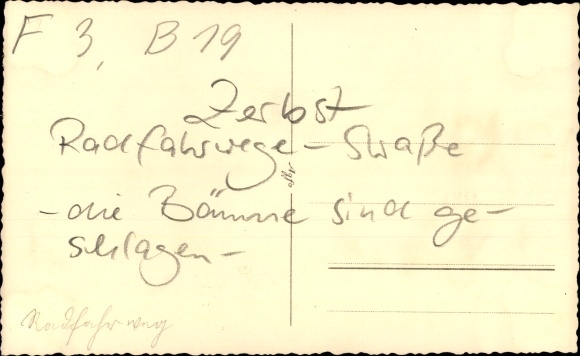 F 3, B 19
Zerbst
Radfahrwege - Straße
- die Bäume sind ge-
schlagen -
Radfahrweg